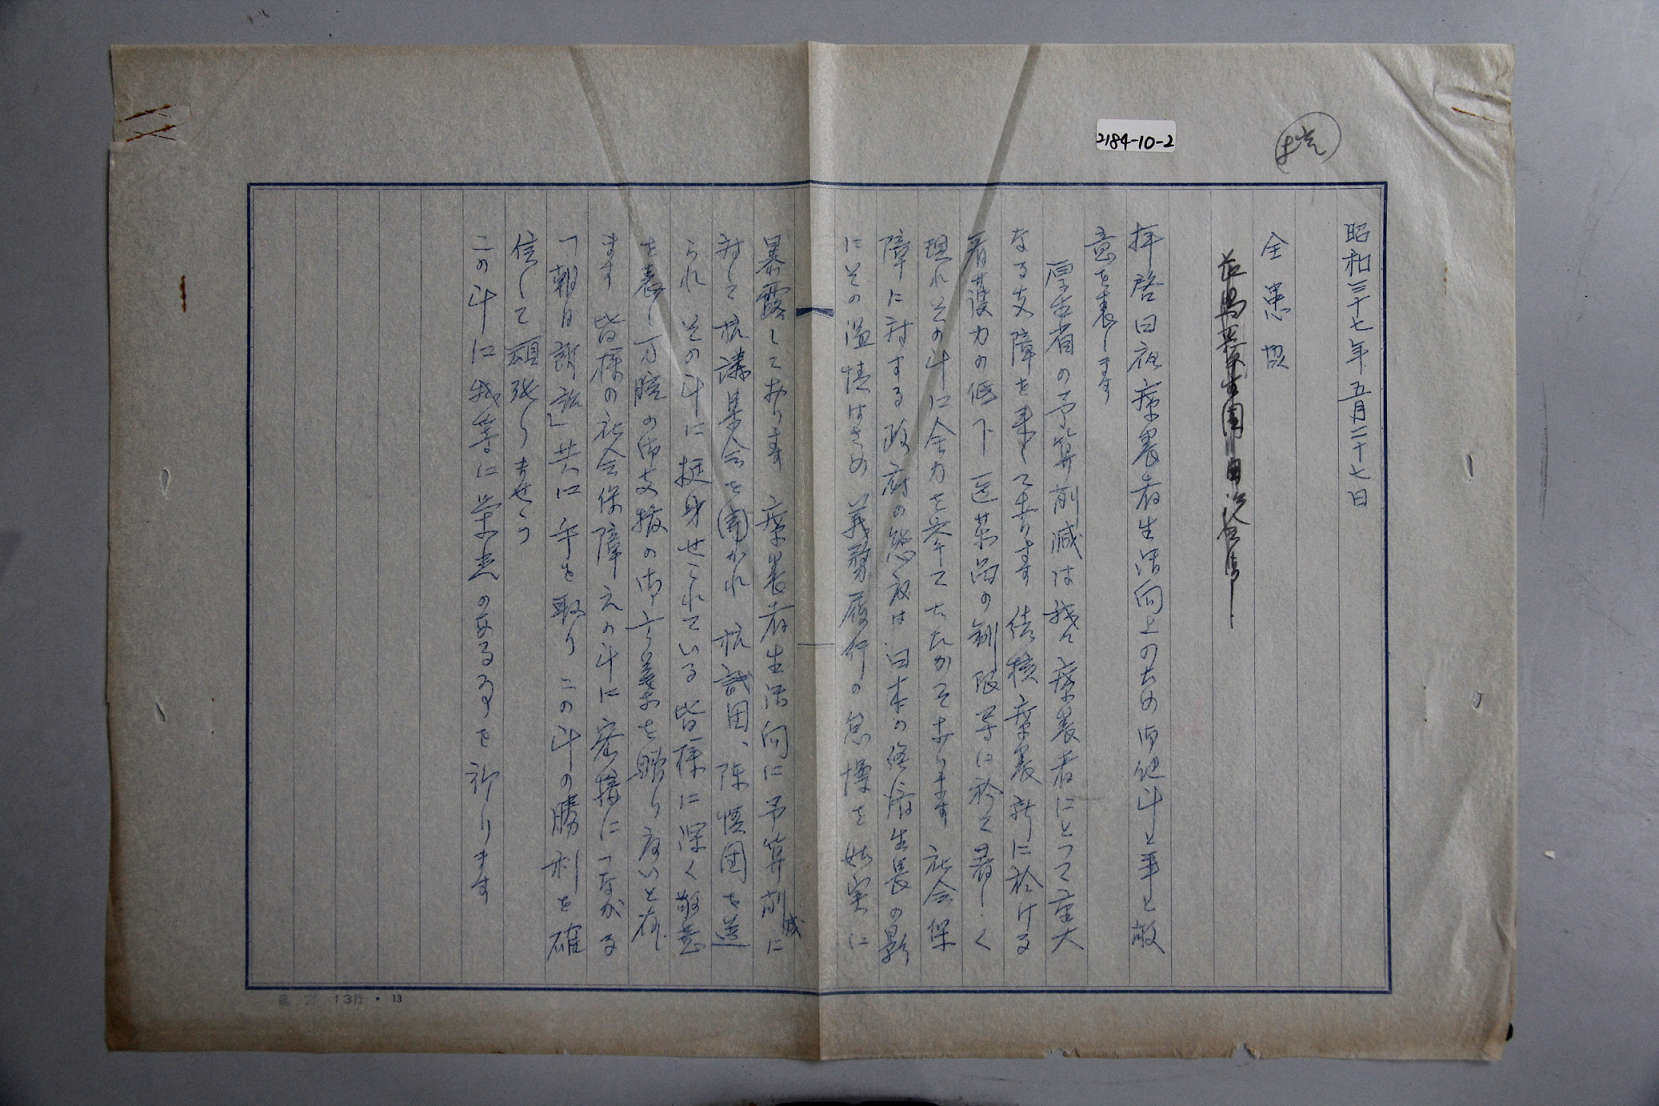 2184-10-2
昭和三十七年五月二十七日
全患協
拝啓 日夜療養者生活向上のため御健斗と事と敬
意を表します
厚生省の予算削減は我々療養者にとって重大
なる支障を来して居ます 結核療養所に於ける
看護力の低下 医薬品の制限等に於て著しく
現れその斗に全力を挙てたたかって居ります 社会保
障に対する政府の態度は日本の経済生長の影
にその温情はさめ義務履行の怠慢を如実に
暴露して居ります 療養者生活向に予算削減に
対して抗議集会を開かれ 抗議団、陳情団を送
られ その斗に挺身せられている皆様に深く敬意
を表し 万腔の御支援の御言葉を贈り度いと存
ます 皆様の社会保障えの斗に密接につながる
「朝日訴訟」共に手を取りこの斗の勝利を確
信して頑張りませう
この斗に我等に栄光のある事を祈ります
13行・13